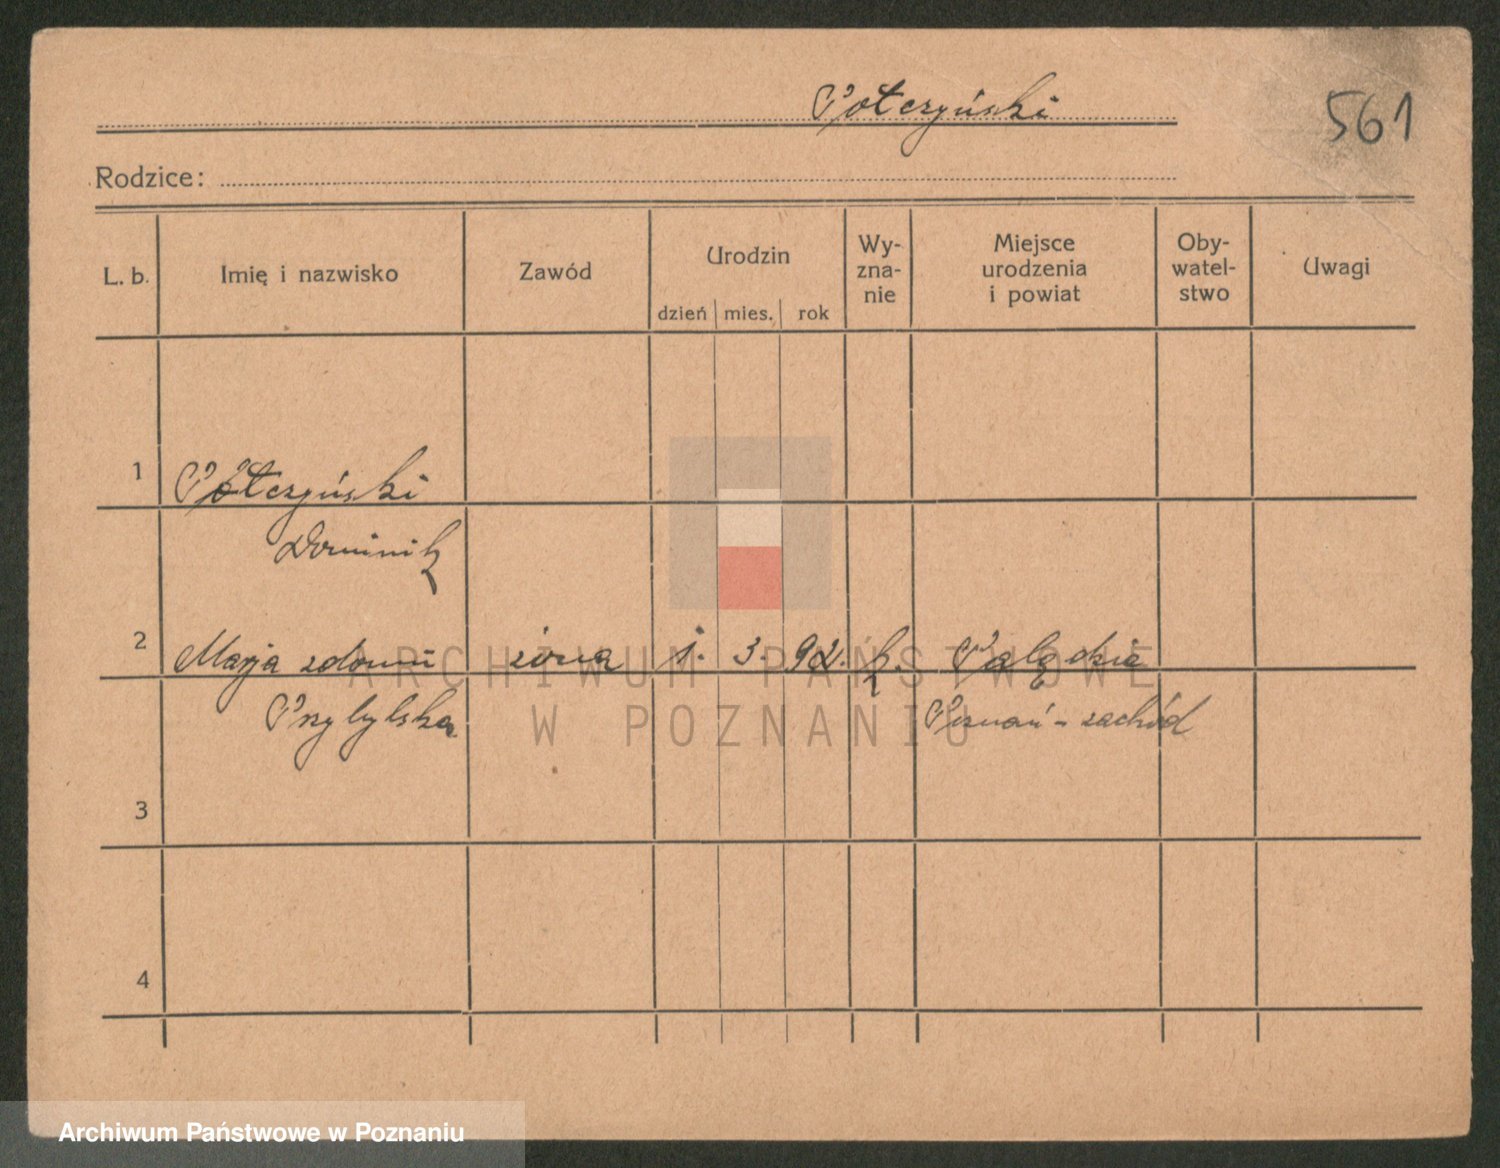 Potczyński
561
Rodzice:
L. b. Imię i nazwisko Zawód Urodzin dzień mies. rok Wy-zna-nie Miejsce urodzenia i powiat Oby-watel-stwo Uwagi
1 Potczyński
Dominik
2 Marja z domu żona 1. 3. 92. k. Palędzie
Przybylska Poznań - zachód
3
4
ARCHIWUM PAŃSTWOWE
W POZNANIU
Archiwum Państwowe w Poznaniu